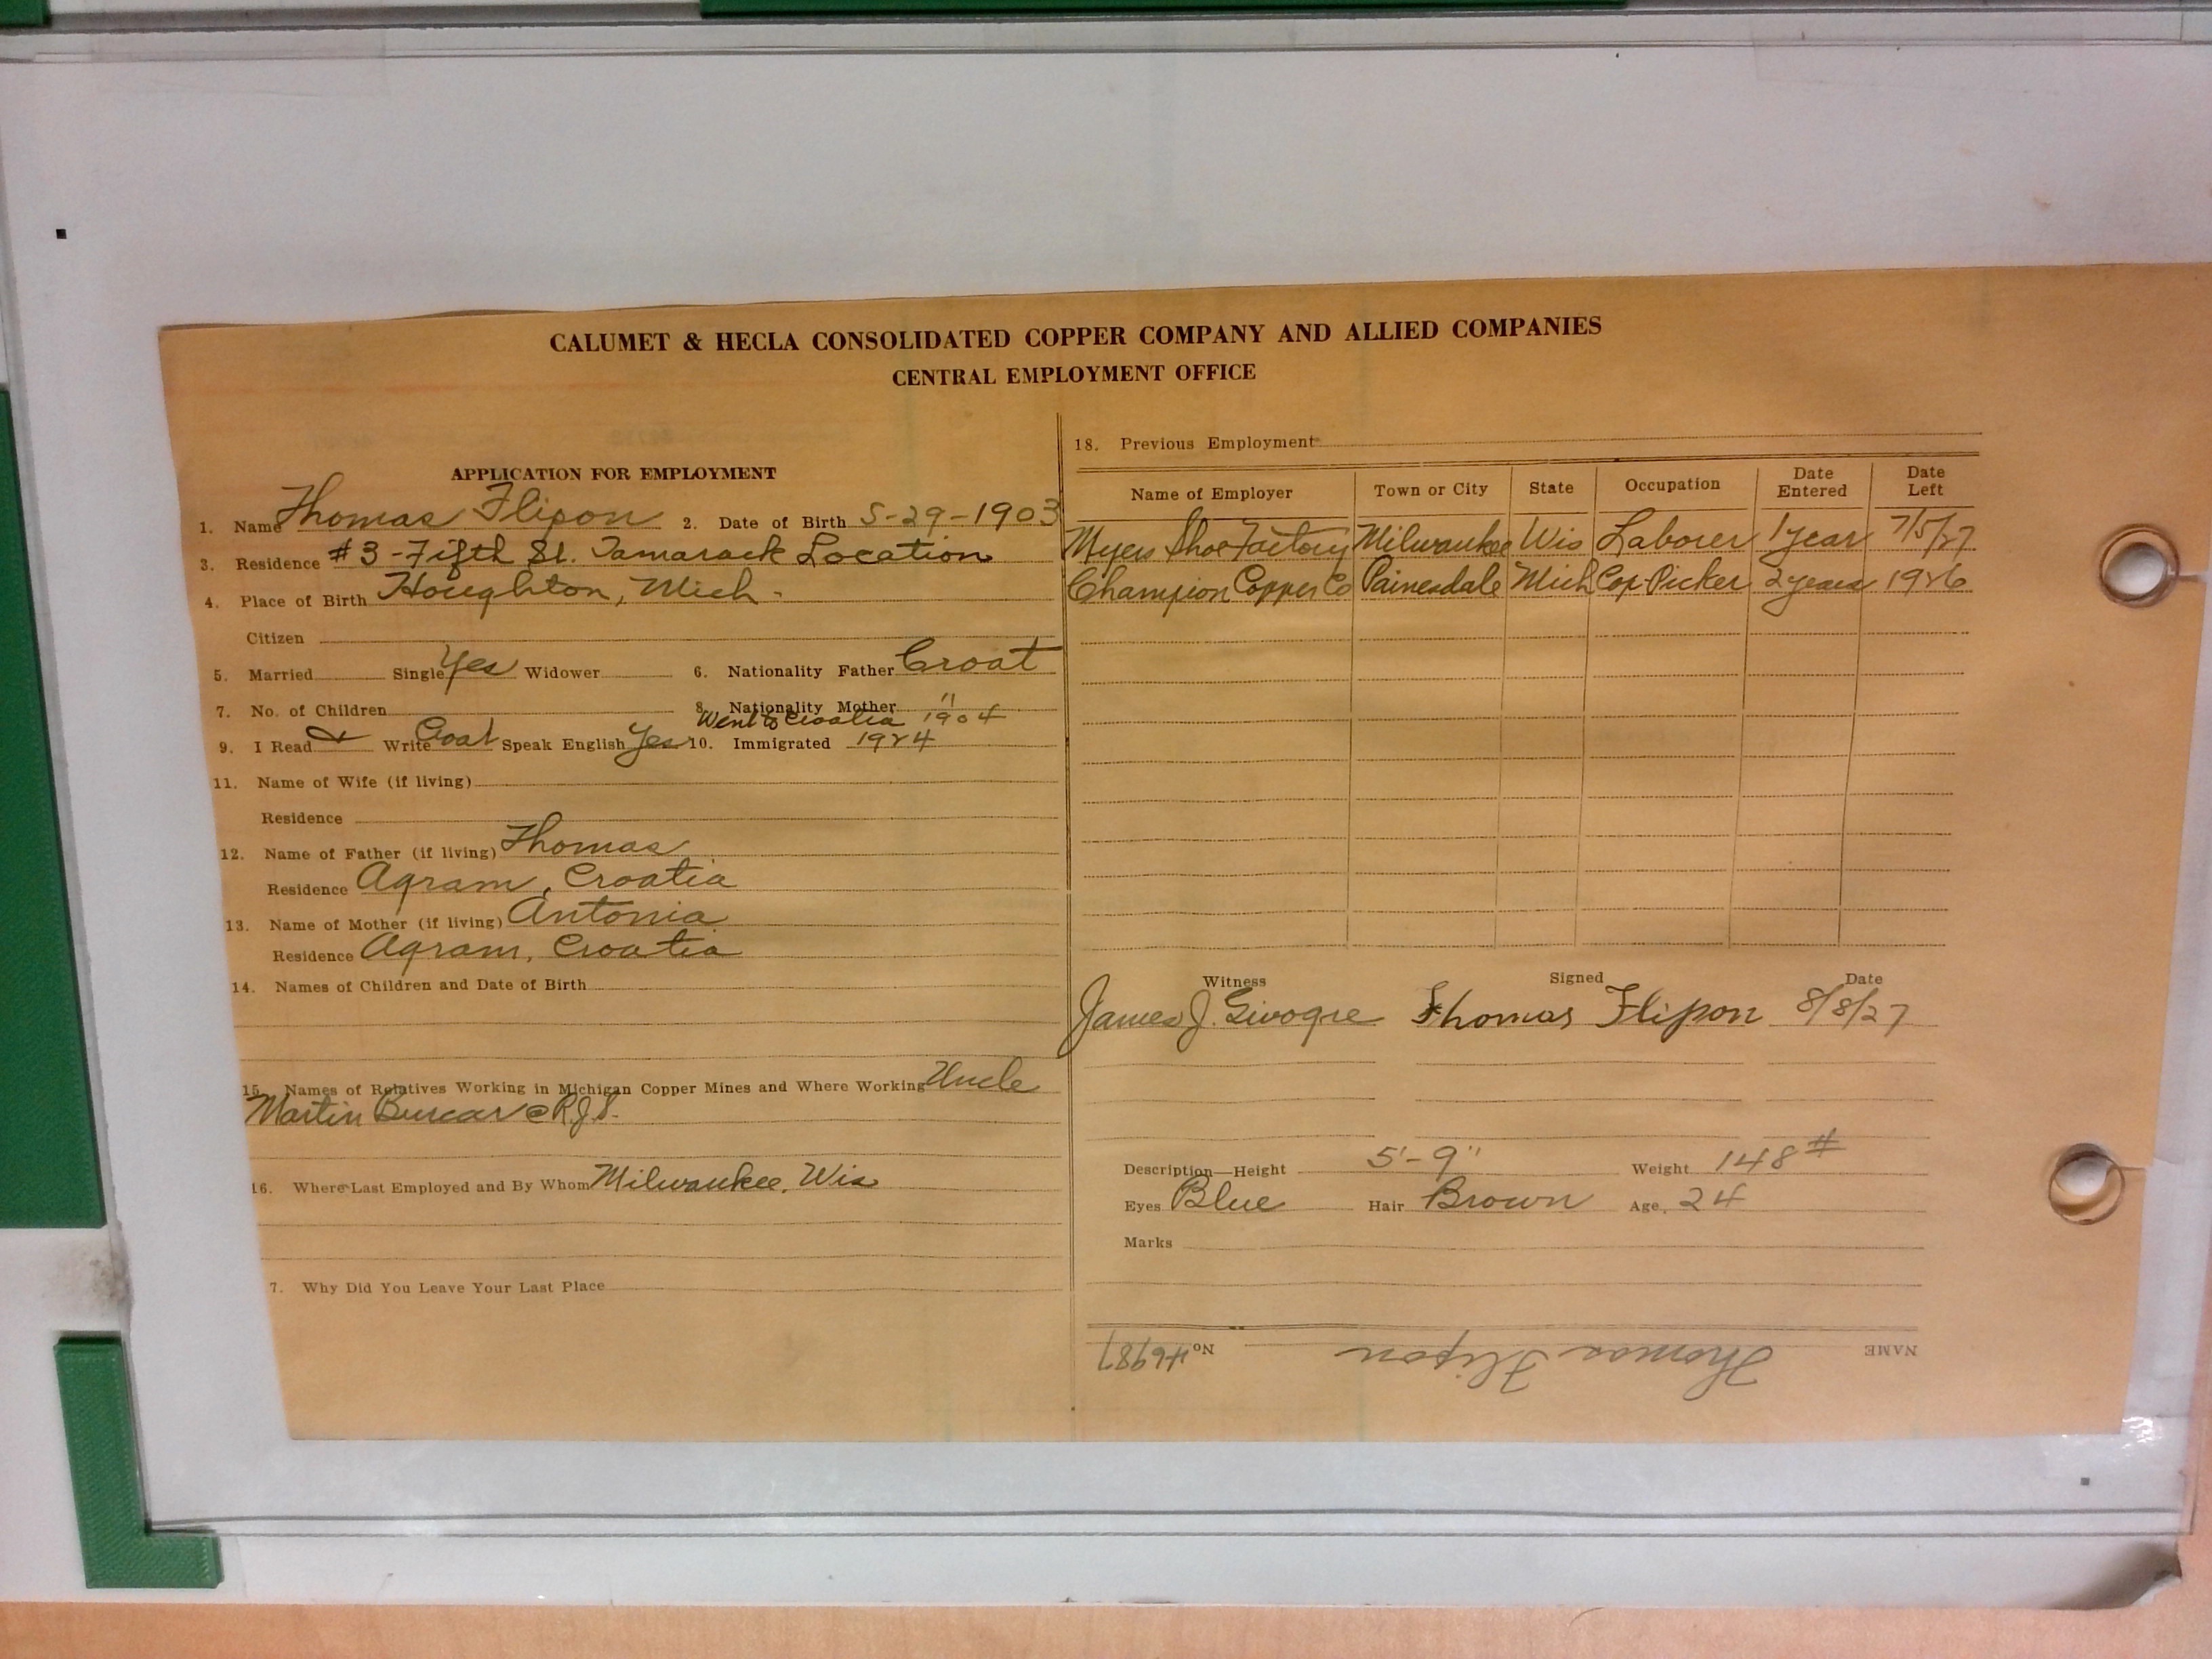 CALUMET & HECLA CONSOLIDATED COPPER COMPANY AND ALLIED COMPANIES
CENTRAL EMPLOYMENT OFFICE
APPLICATION FOR EMPLOYMENT
1. Name Thomas Flipon 2. Date of Birth 5-29-1903
3. Residence #3-Fifth St. Tamarack Location
4. Place of Birth Houghton, Mich.
Citizen
5. Married Single Yes Widower 6. Nationality Father Croat
7. No. of Children 8. Nationality Mother "
Went to Croatia 1904
9. I Read & Write Croat Speak English Yes 10. Immigrated 1924
11. Name of Wife (if living)
Residence
12. Name of Father (if living) Thomas
Residence Agram, Croatia
13. Name of Mother (if living) Antonia
Residence Agram, Croatia
14. Names of Children and Date of Birth
15. Names of Relatives Working in Michigan Copper Mines and Where Working Uncle
Martin @ R.J.S.
16. Where Last Employed and By Whom Milwaukee, Wis
7. Why Did You Leave Your Last Place
18. Previous Employment
Name of Employer Town or City State Occupation Date Entered Date Left
Myers Shoe Factory Milwaukee Wis Laborer 1 year 7/5/27
Champion Copper Co Painesdale Mich Cop-Picker 2 years 1926
Witness Signed Date
James J. Thomas Flipon 8/8/27
Description—Height 5'-9" Weight 148#
Eyes Blue Hair Brown Age 24
Marks
NAME Thomas Flipon No. 46987